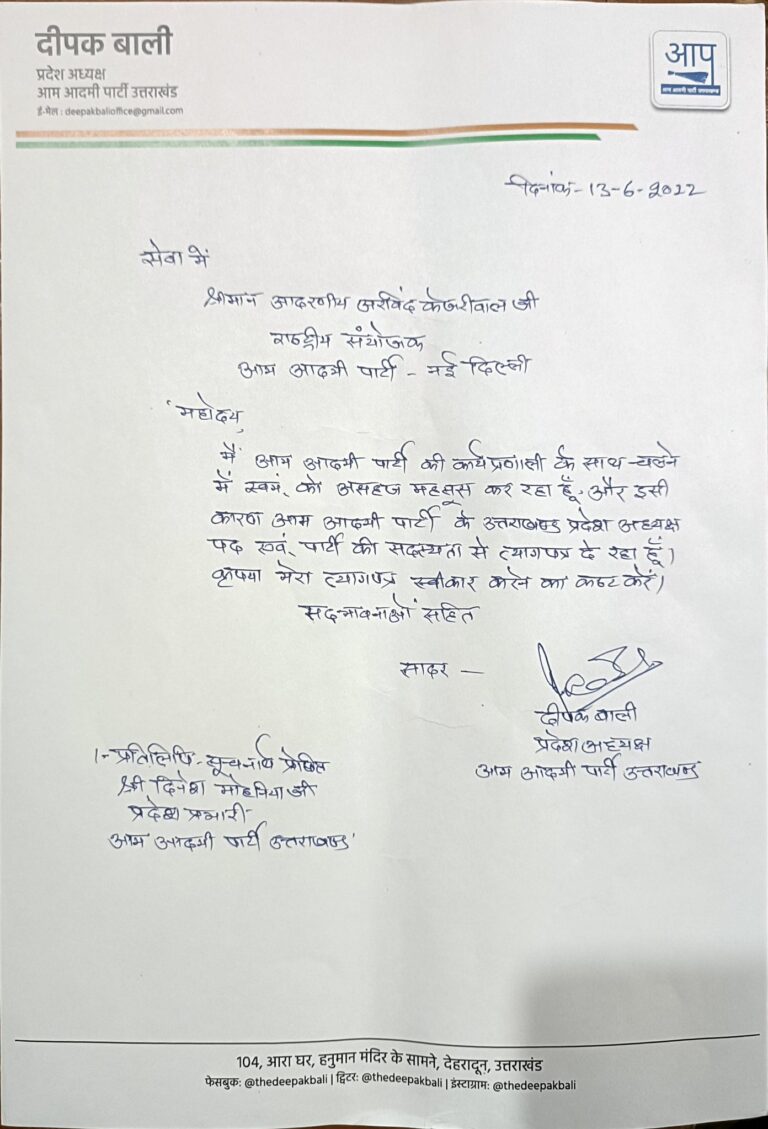 दीपक बाली
प्रदेश अध्यक्ष
आम आदमी पार्टी उत्तराखंड
ई-मेल : deepakbalioffice@gmail.com
आप
आम आदमी पार्टी उत्तराखण्ड
दिनांक-13-6-2022
सेवा में
श्रीमान आदरणीय अरविंद केजरीवाल जी
राष्ट्रीय संयोजक
आम आदमी पार्टी - नई दिल्ली
महोदय,
मैं आम आदमी पार्टी की कार्यप्रणाली के साथ चलने
में स्वयं को असहज महसूस कर रहा हूँ, और इसी
कारण आम आदमी पार्टी के उत्तराखण्ड प्रदेश अध्यक्ष
पद एवं पार्टी की सदस्यता से त्यागपत्र दे रहा हूँ।
कृपया मेरा त्यागपत्र स्वीकार करने का कष्ट करें।
सदभावनाओं सहित
सादर —
दीपक बाली
प्रदेश अध्यक्ष
आम आदमी पार्टी उत्तराखण्ड
1- प्रतिलिपि - सूचनार्थ प्रेषित
श्री दिनेश मोहनिया जी
प्रदेश प्रभारी
आम आदमी पार्टी उत्तराखण्ड
104, आरा घर, हनुमान मंदिर के सामने, देहरादून, उत्तराखंड
फेसबुक: @thedeepakbali | ट्विटर: @thedeepakbali | इंस्टाग्राम: @thedeepakbali